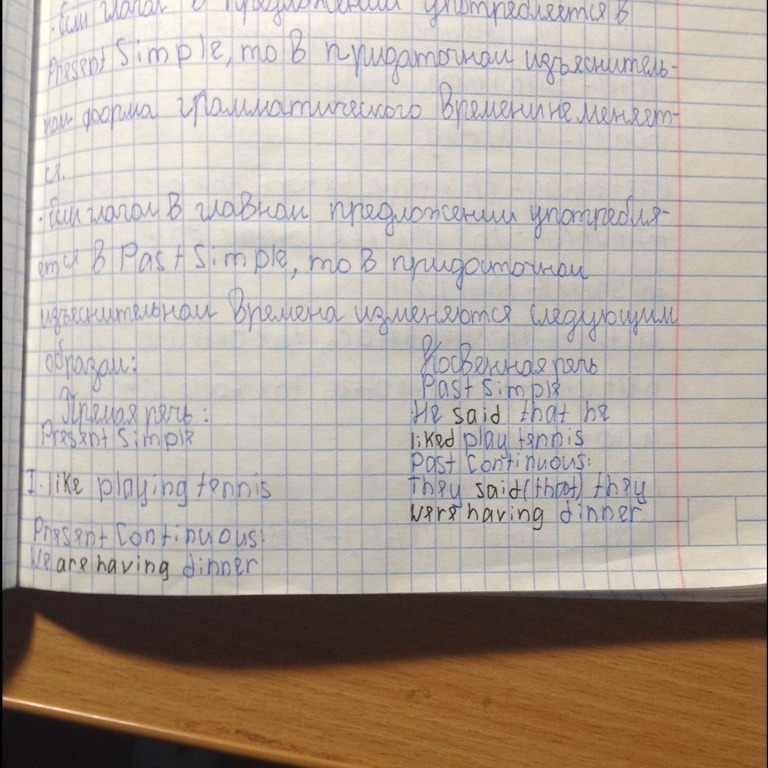 · Если глагол в предложении употребляется в
Present Simple, то в придаточном изъяснитель-
ном форма грамматического времени не меняет-
ся.
· Если глагол в главном предложении употребля-
ется в Past Simple, то в придаточном
изъяснительном времена изменяются следующим
образом:
Прямая речь:
Present Simple
I like playing tennis
Present Continuous:
We are having dinner
Косвенная речь
Past Simple
He said that he
liked play tennis
Past Continuous:
They said (that) they
were having dinner